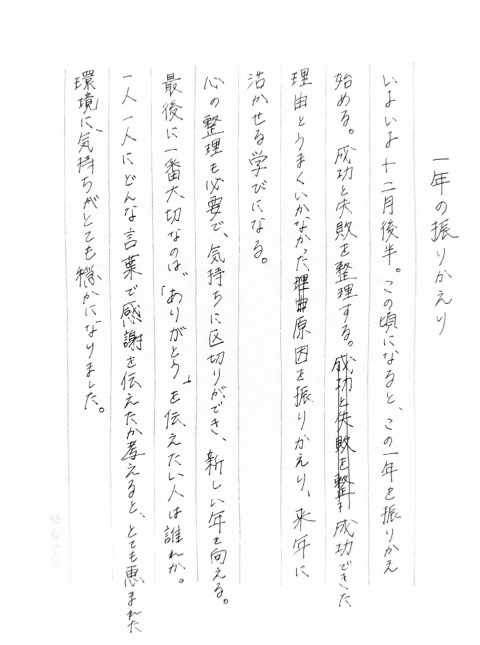 一年の振りかえり
いよいよ十二月後半。この頃になると、この一年を振りかえ
始める。成功と失敗を整理する。成功と失敗を整理成功できた
理由とうまくいかなかった理由原因を振りかえり、来年に
活かせる学びになる。
心の整理も必要で、気持ちに区切りができ、新しい年を向える。
最後に一番大切なのは、「ありがとう」を伝えたい人は誰れか。
一人一人にどんな言葉で感謝を伝えたか考えると、とても恵まれた
環境に、気持ちがとても穏かになりました。